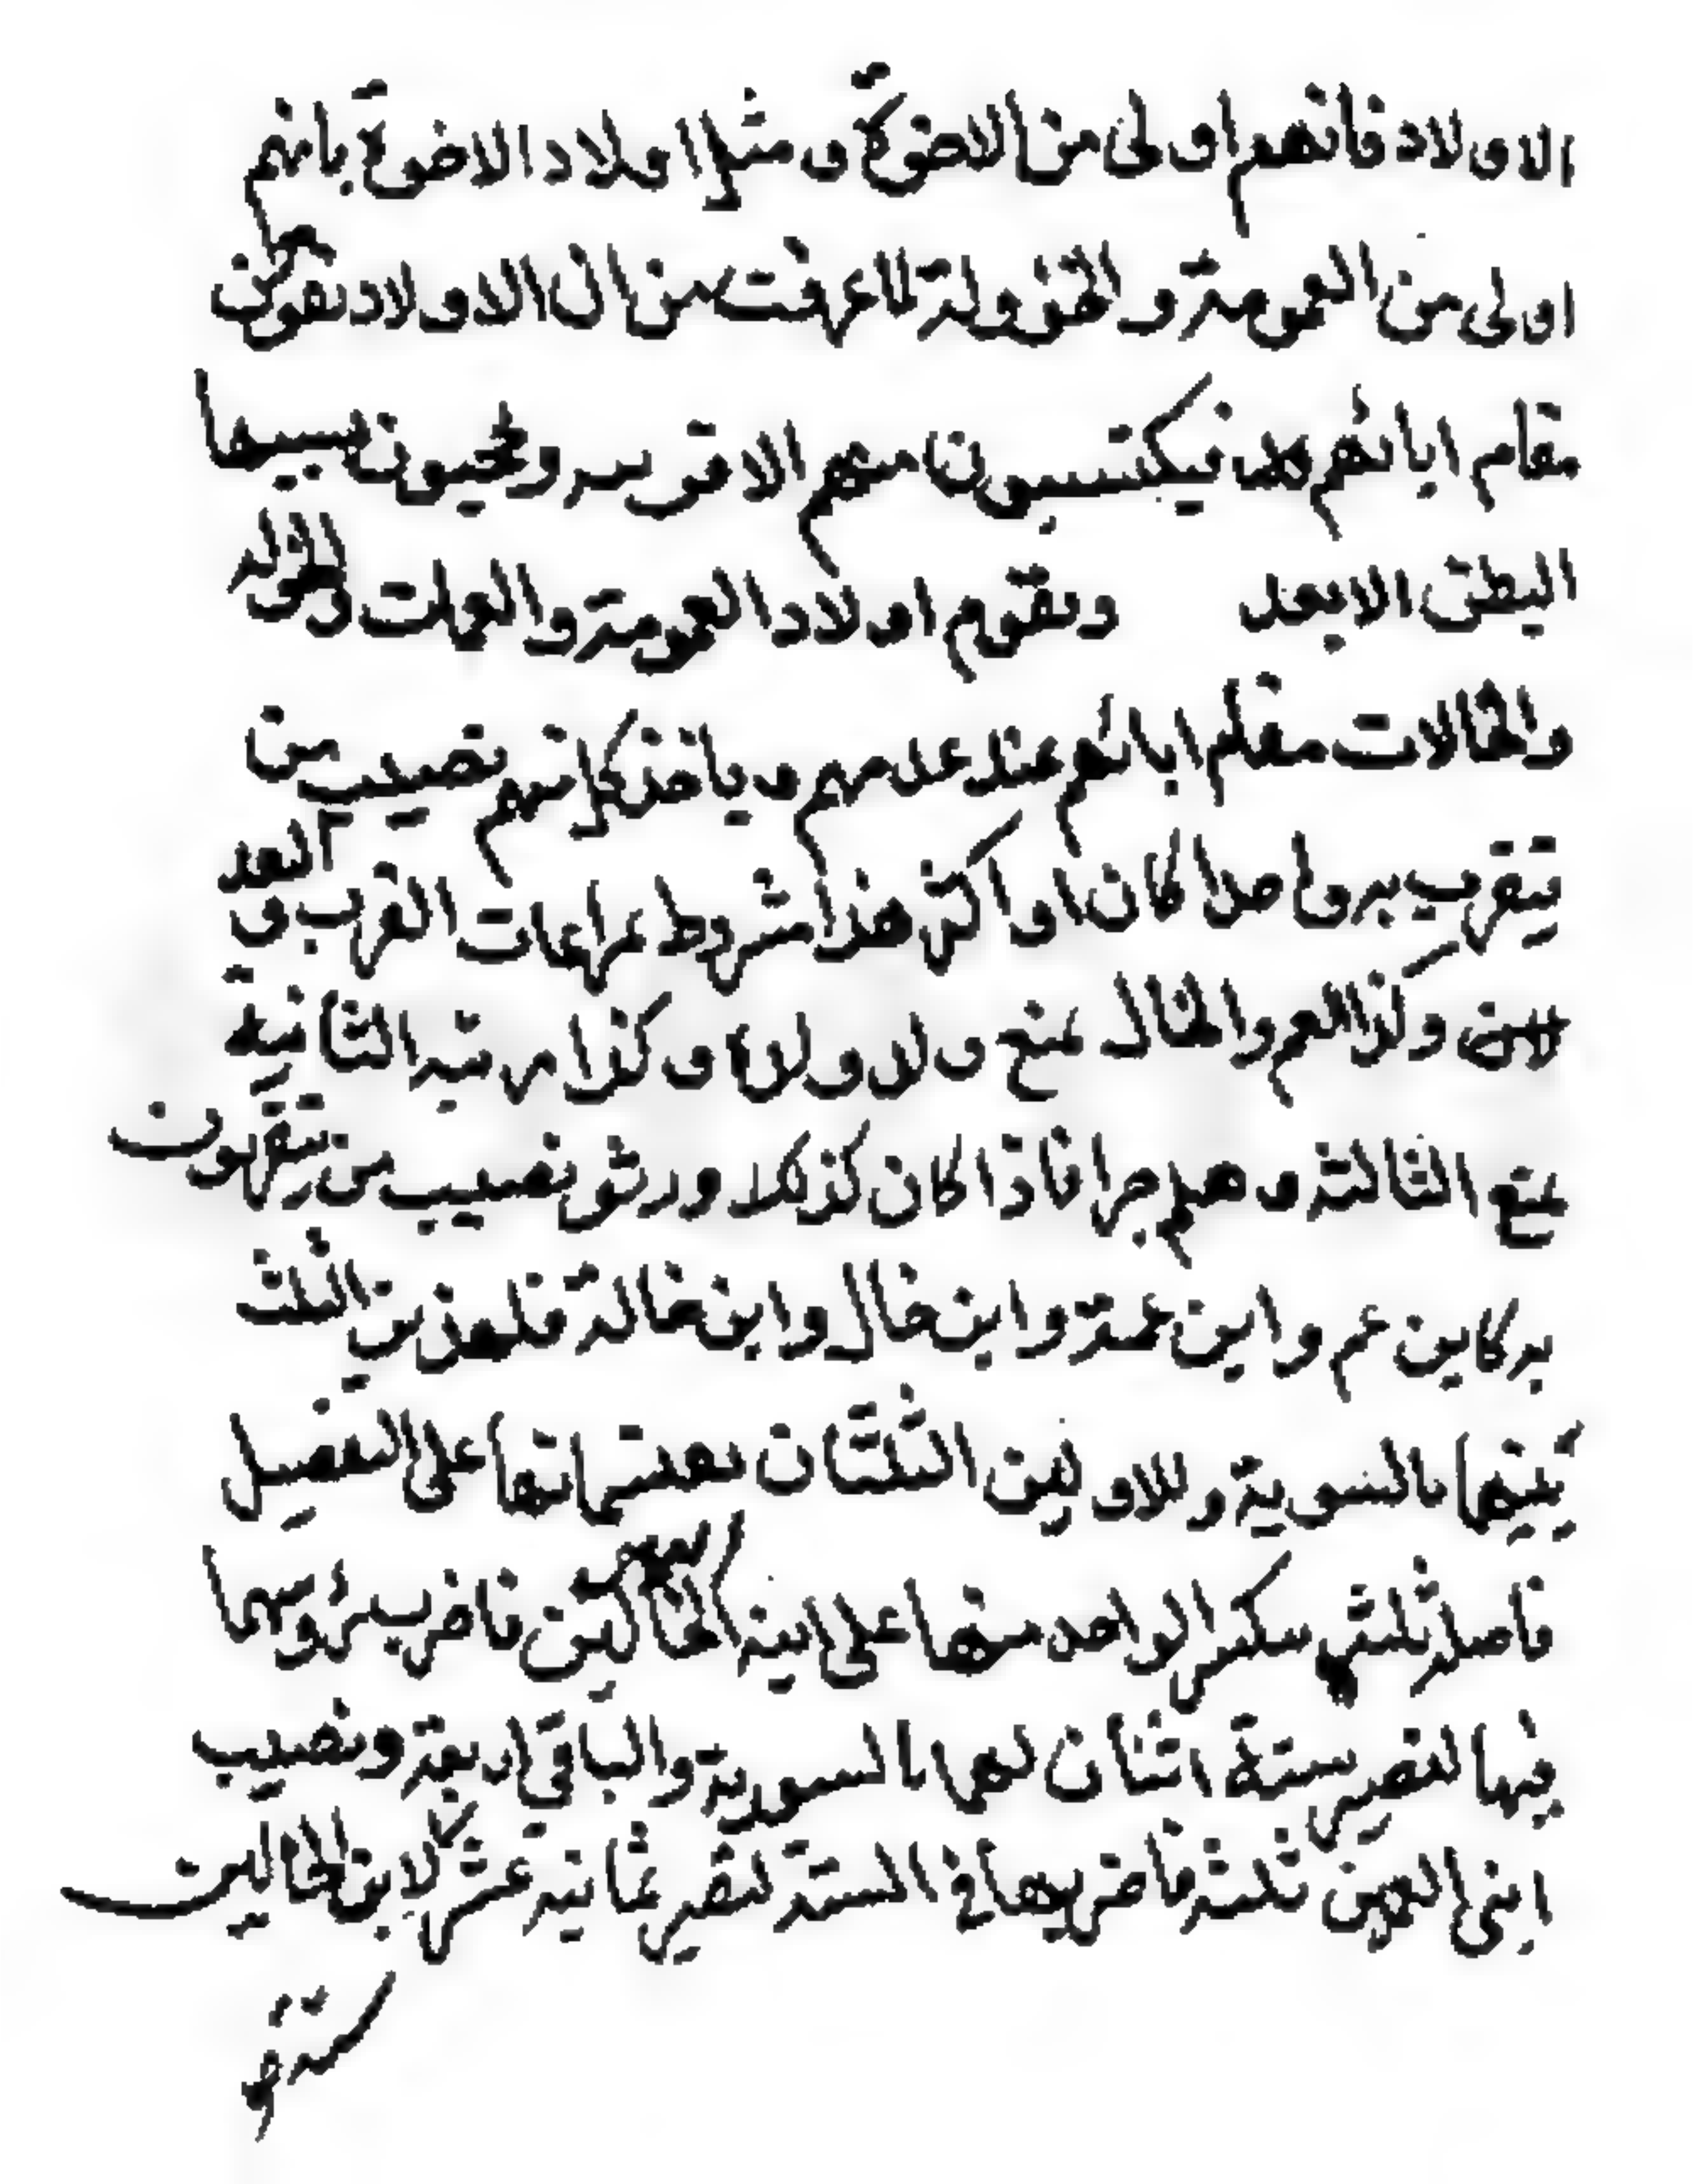 الاولاد فانهم اولى من الاخوة ومثلها اولاد الاخوة بانهم
اولى من العمومة والخؤولة لما عرفت من ان الاولاد تقومون
مقام ابائهم فيكتسبون منهم الاقرب ويحجبون بسببها
البطن الابعد وتقوم اولاد العمومة والعمات والخؤله
والخالات مقام ابائهم عند عدمهم وياخذ كل منهم نصيب من
يتقرب به واحدا كان او اكثر هذا مشروط بمراعات القرب و البعد
وكذا العم والخال يمنع ولد ولده وكذا مرتبه الثانية
يمنع الثالثة وهلم جرا فاذا كان كذلك ورثو نصيب من يتقربون
به كابن عم وابن عمة وابن خال وابن خالة فلهذين الثلث
بينهما بالسوية وللاولين الثلثان يقتسمانها على التفضيل
فاصله ثلثه سكسر الواحد منها على ابنى الخالين فاضرب رؤسهما
فيها لتصير ستة اثنان لهما بالسوية والباقي اربعة ونصيب
ابنى العمين ثلثه فاضربها في الستة لتصير ثمانيه عشر لابن الخالين
ستة